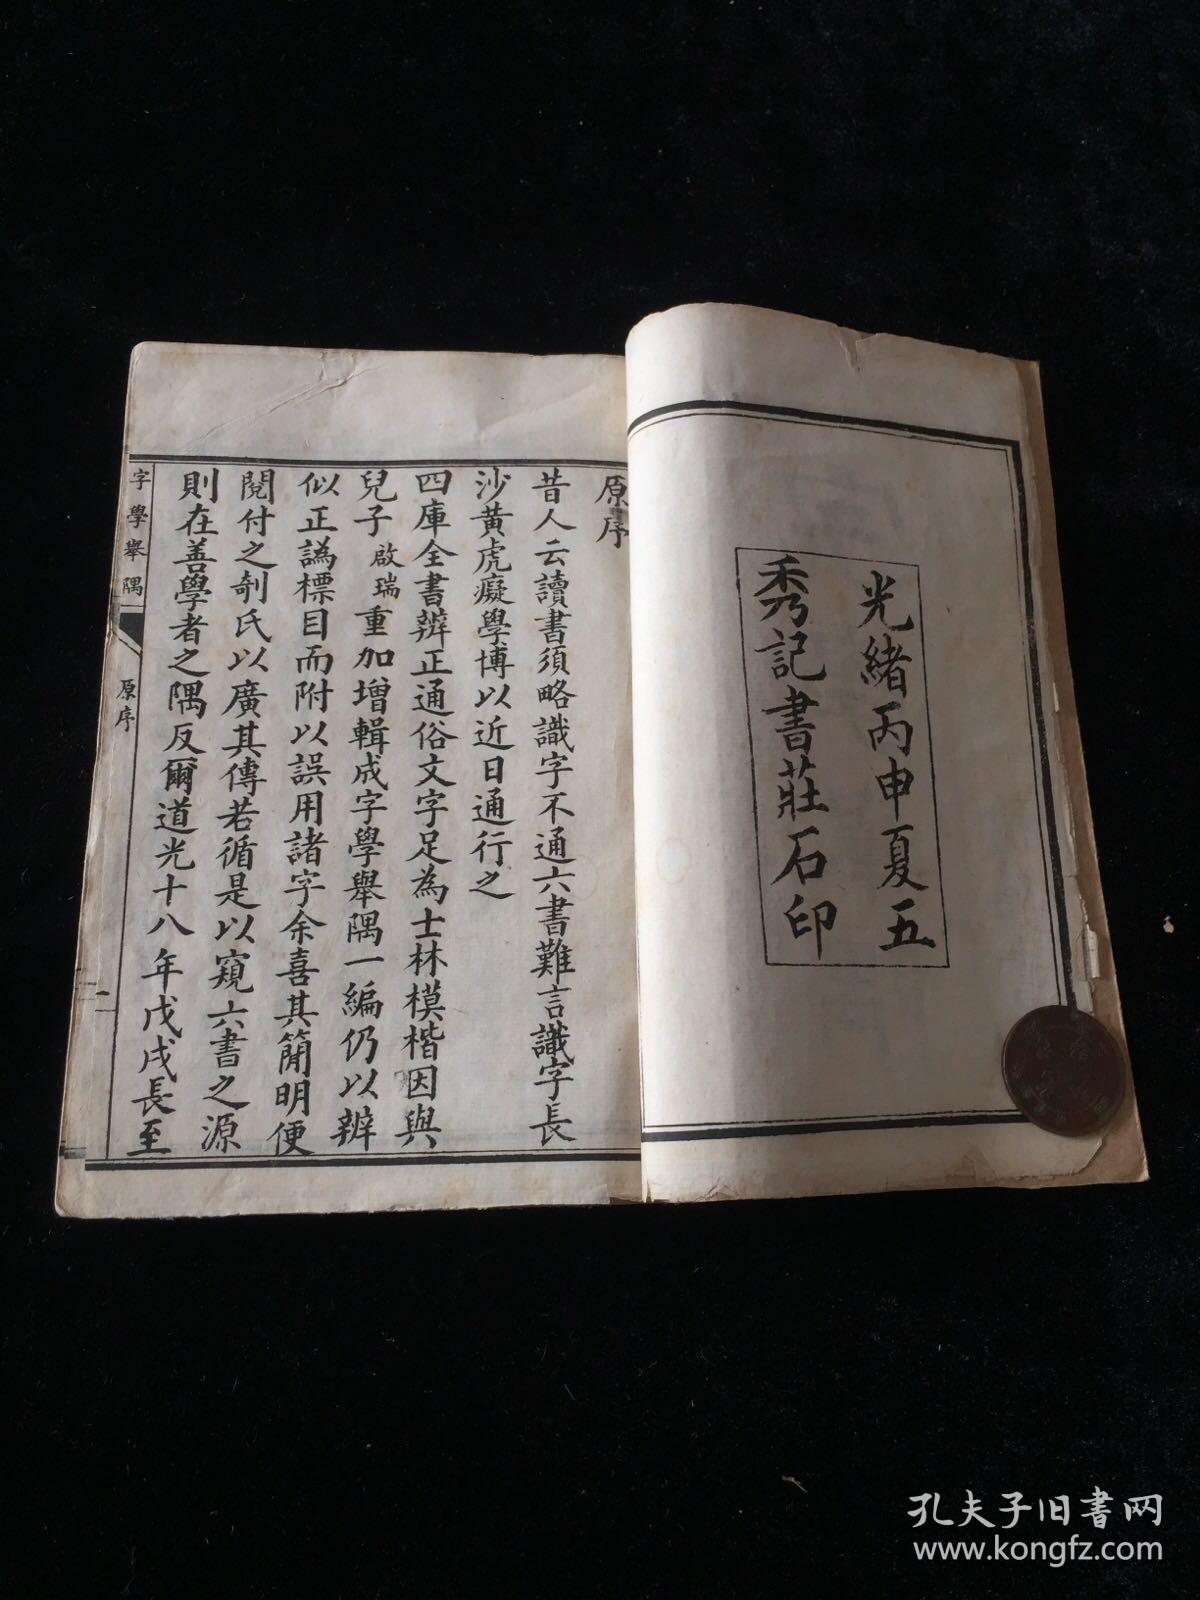 光緒丙申夏五
秀記書莊石印
原序
昔人云讀書須略識字不通六書難言識字長
沙黃虎癡學博以近日通行之
四庫全書辨正通俗文字足為士林模楷因與
兒子啟瑞重加增輯成字學舉隅一編仍以辨
似正譌標目而附以誤用諸字余喜其簡明便
閱付之剞氏以廣其傳若循是以窺六書之源
則在善學者之隅反爾道光十八年戊戌長至
字學舉隅
原序
二
孔夫子旧书网
www.kongfz.com